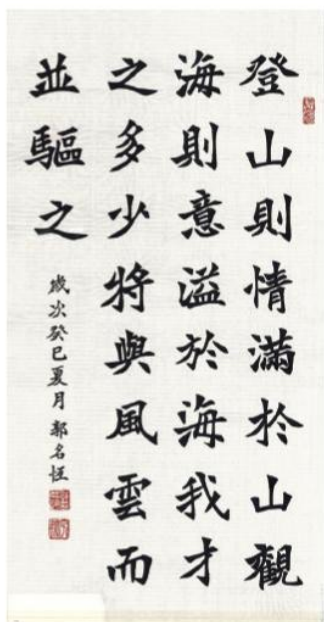 登山則情滿於山觀
海則意溢於海我才
之多少將與風雲而
並驅之
歲次癸巳夏月郭名恆